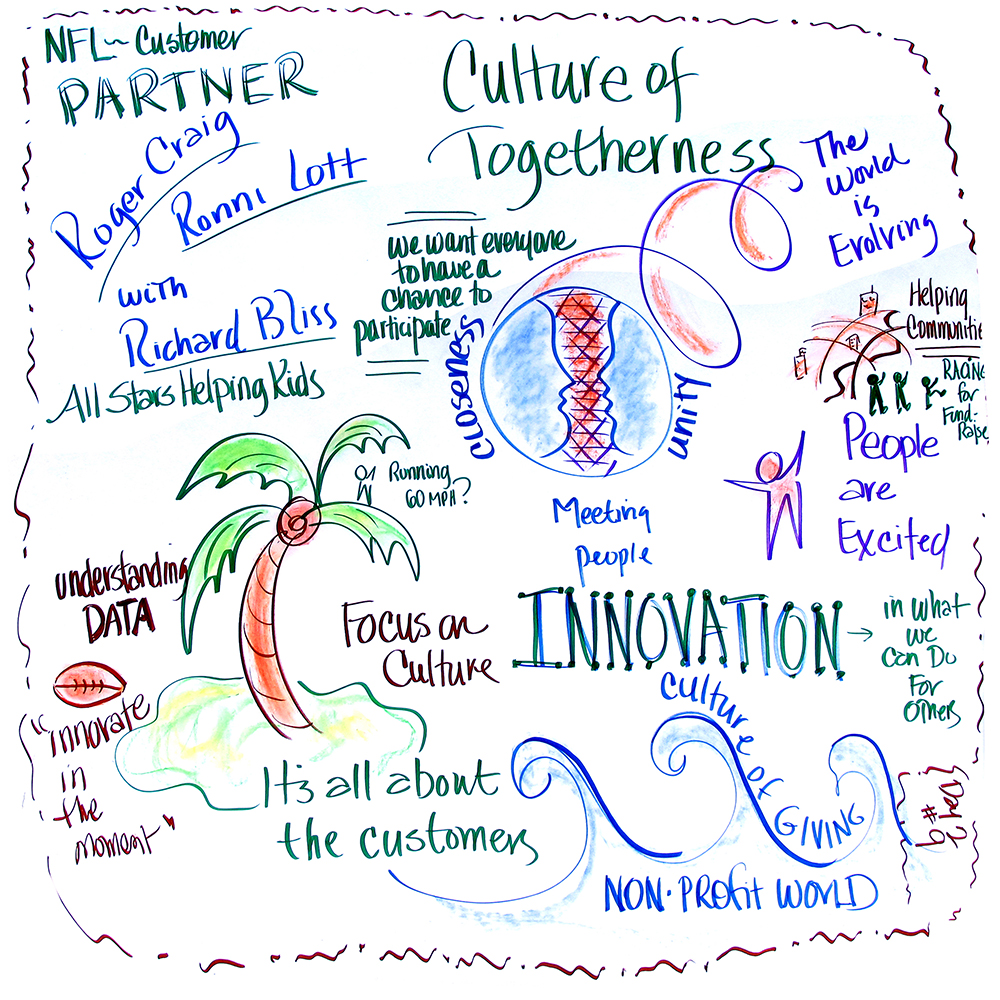 NFL~Customer
PARTNER
Roger Craig
Ronni Lott
with
Richard Bliss
All Stars Helping Kids
Culture of
Togetherness
The
World
is
Evolving
we want everyone
to have a
chance to
participate
closeness
unity
Helping
Communitie
RACING
for
Fund-
Raise
People
are
Excited
Running
60 MPH?
Meeting
people
understanding
DATA
Focus on
Culture
INNOVATION →
in what
we
Can Do
For
Others
"innovate
in
the
moment"
It's all about
the customers
Culture of GIVING
NON-Profit WORLD
Day 2
#9